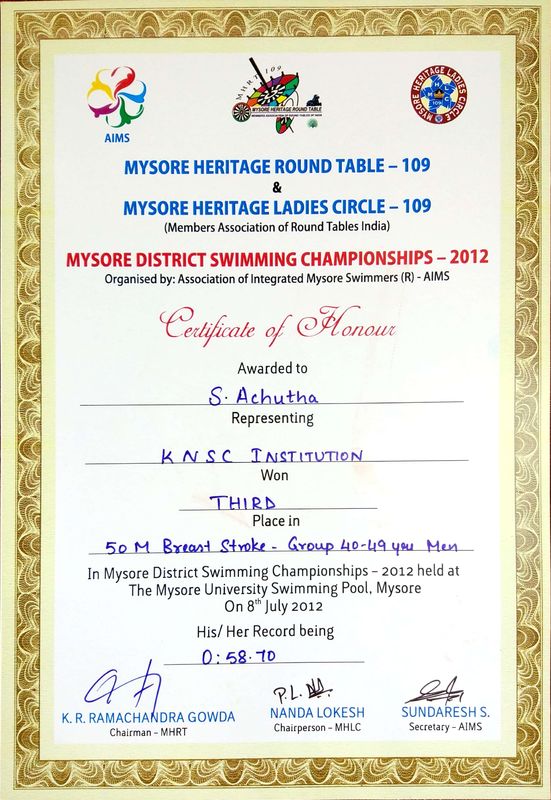 AIMS
MHRT 109
MYSORE HERITAGE ROUND TABLE
MEMBERS ASSOCIATION OF ROUND TABLES OF INDIA
MYSORE HERITAGE LADIES CIRCLE
109
MYSORE HERITAGE ROUND TABLE – 109
&
MYSORE HERITAGE LADIES CIRCLE – 109
(Members Association of Round Tables India)
MYSORE DISTRICT SWIMMING CHAMPIONSHIPS – 2012
Organised by: Association of Integrated Mysore Swimmers (R) - AIMS
Certificate of Honour
Awarded to
S. Achutha
Representing
KNSC INSTITUTION
Won
THIRD
Place in
50 M Breast Stroke - Group 40-49 yeu Men
In Mysore District Swimming Championships – 2012 held at
The Mysore University Swimming Pool, Mysore
On 8th July 2012
His/ Her Record being
0:58.70
P.L.
K. R. RAMACHANDRA GOWDA NANDA LOKESH SUNDARESH S.
Chairman – MHRT Chairperson – MHLC Secretary – AIMS